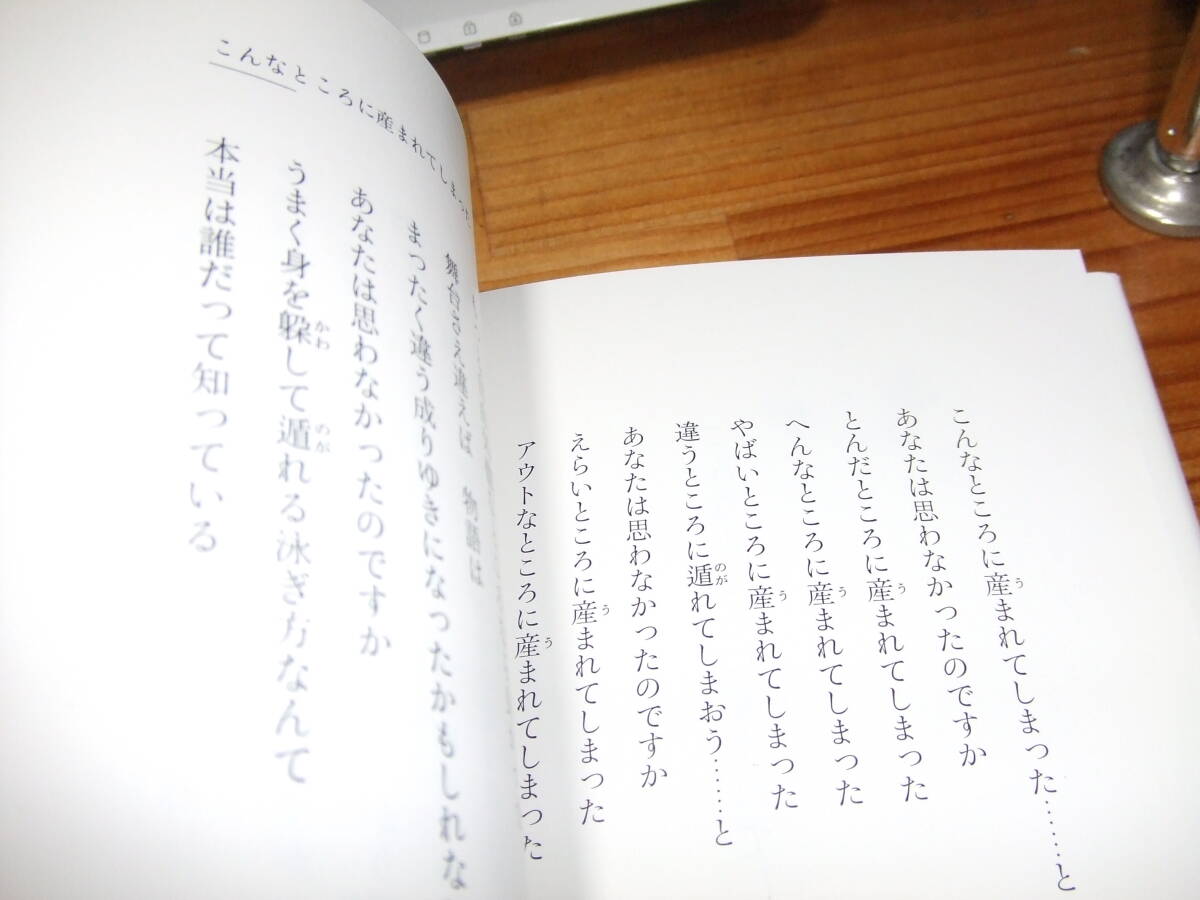 こんなところに産まれてしまった………と
あなたは思わなかったのですか
とんだところに産まれてしまった
へんなところに産まれてしまった
やばいところに産まれてしまった
違うところに遁れてしまおう………と
あなたは思わなかったのですか
えらいところに産まれてしまった
アウトなところに産まれてしまった
こんなところに産まれてしまった
舞台さえ違えば 物語は
まったく違う成りゆきになったかもしれな
あなたは思わなかったのですか
うまく身を躱して遁れる泳ぎ方なんて
本当は誰だって知っている